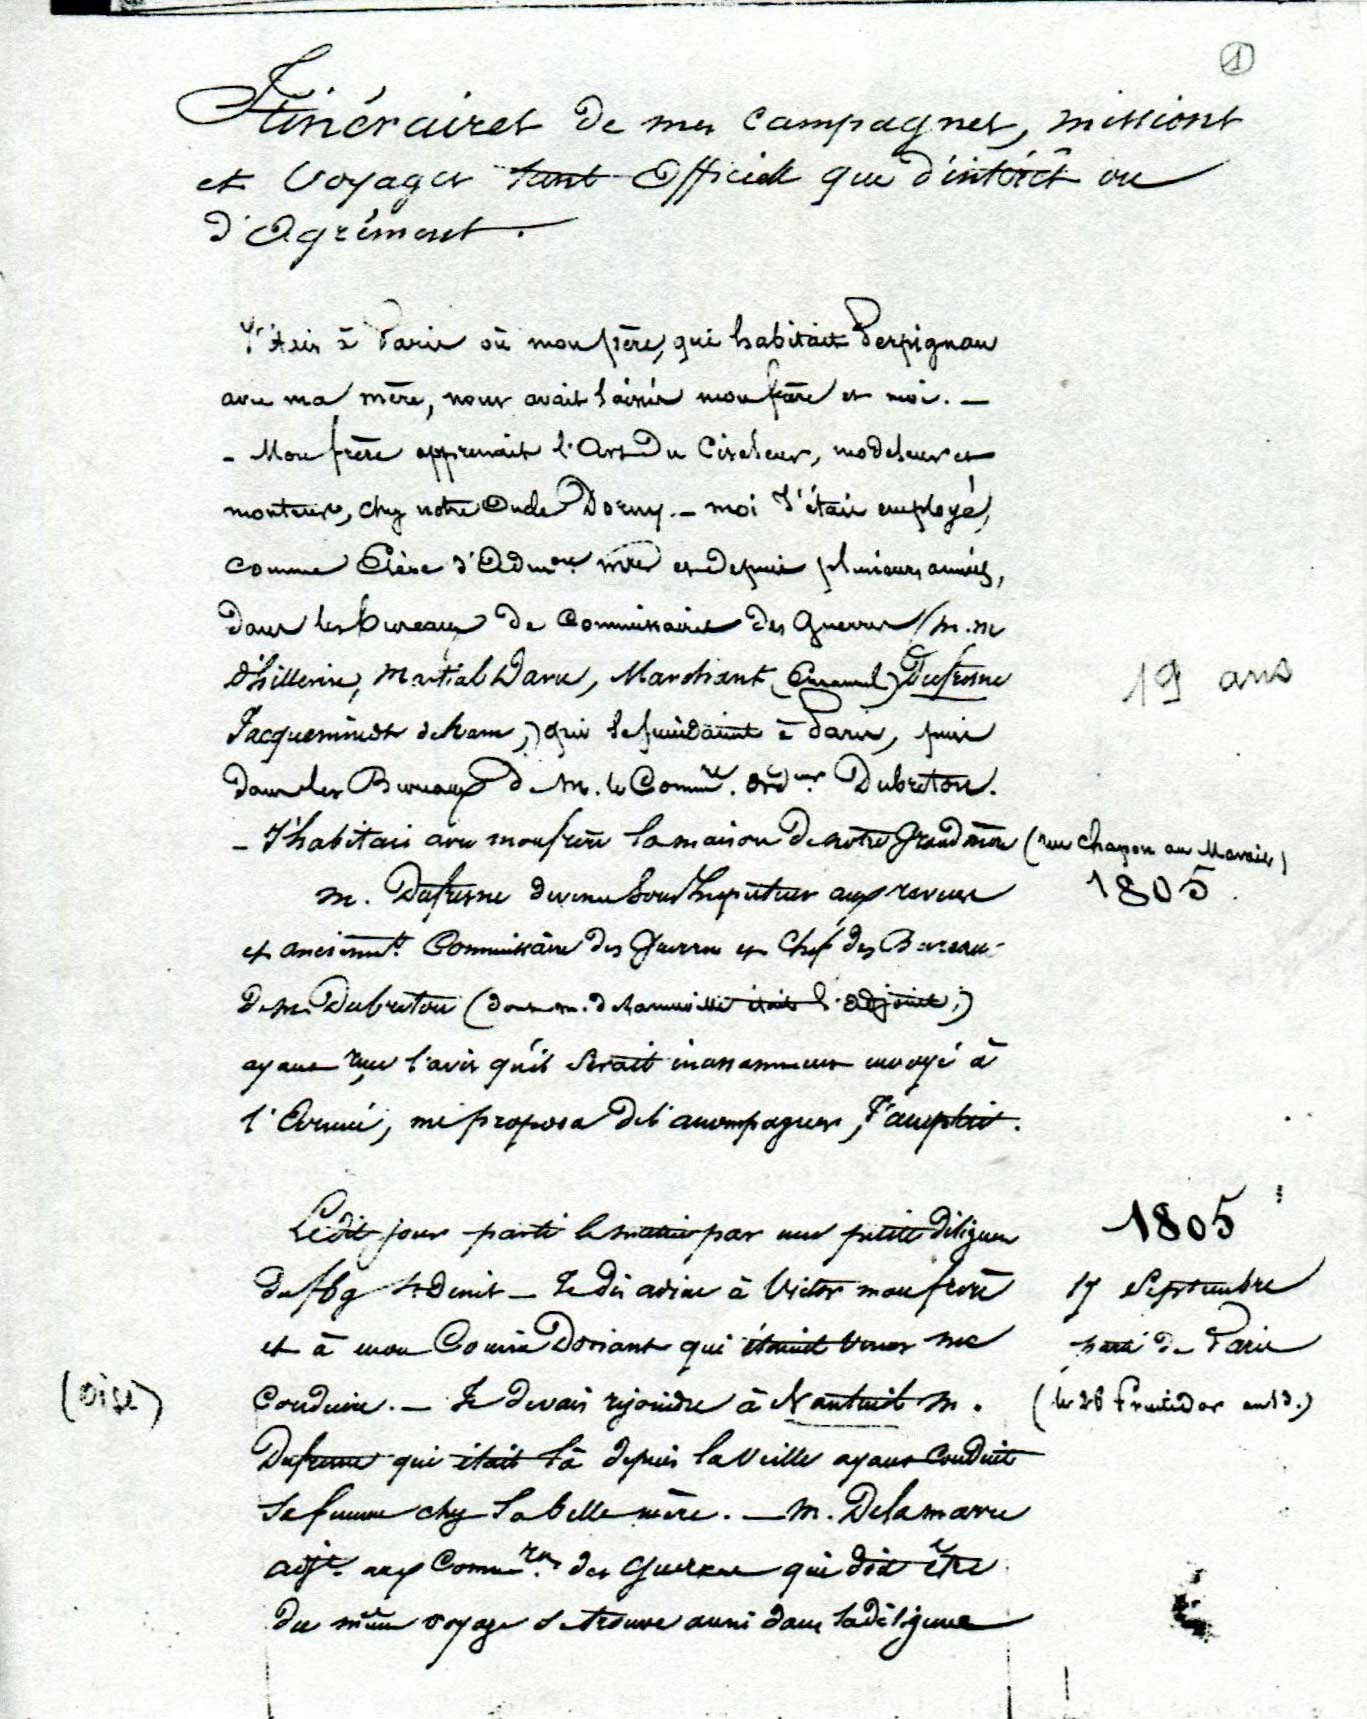 1
Itinéraires de mes campagnes, missions
et Voyages tant Officiels que d'intérêt ou
d'Agrément.
J'étais à Paris où mon père, qui habitait Perpignan
avec ma mère, nous avait laissés mon frère et moi. —
- Mon frère apprenait l'Art du Ciseleur, modeleur et
monteur, chez notre Oncle Dorny. — moi J'étais employé,
comme Elève d'Admon. mre et depuis plusieurs années,
dans les bureaux de Commissaires des Guerres (M.M
d'hillerin, Martial Daru, Marchant, Dufresne
Jacqueminot de ham,) qui se succédaient à Paris, puis
dans les Bureaux de M. le Commre. Ordeur. Dubreton.
- J'habitais avec mon frère la maison de notre Grand mère (rue Chapon au Marais)
19 ans
1805
M. Dufresne devenu Sous Inspecteur aux revues
et ancienmt. Commissaire des Guerres et Chef des Bureaux
de M. Dubreton (dont M. de était l'adjoint,)
ayant reçu l'avis qu'il serait incessamment envoyé à
l'Armée, me proposa de l'accompagner, J'acceptai.
1805
Ledit jour parti le matin par une petite diligence
du fbg St. Denis — Je dis adieu à Victor mon frère
17 Septembre
et à mon Cousin Doriant qui étaient venus me
parti de Paris
(Oise)
conduire. — Je devais rejoindre à Nanteuil M.
(le 28 Fructidor an 13.)
Dufresne qui était là depuis la veille ayant conduit
sa femme chez sa belle mère. — M. Delamarre
adjt. aux Commres. des Guerres qui doit être
du même voyage se trouve aussi dans la diligence